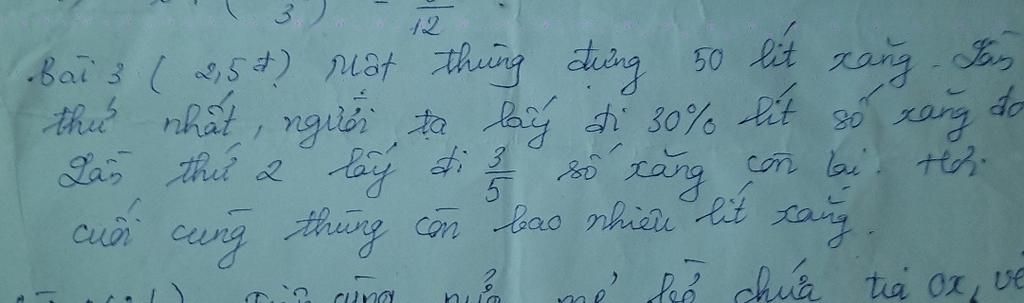 ( 3 ) = 12
Bài 3 ( 2,5đ) Một thùng đựng 50 lít xăng. Lần
thứ nhất, người ta lấy đi 30% lít số xăng đó
Lần thứ 2 lấy đi 3/5 số xăng còn lại. Hỏi
cuối cùng thùng còn bao nhiêu lít xăng.
cùng nửa bờ chứa tia Ox, vẽ